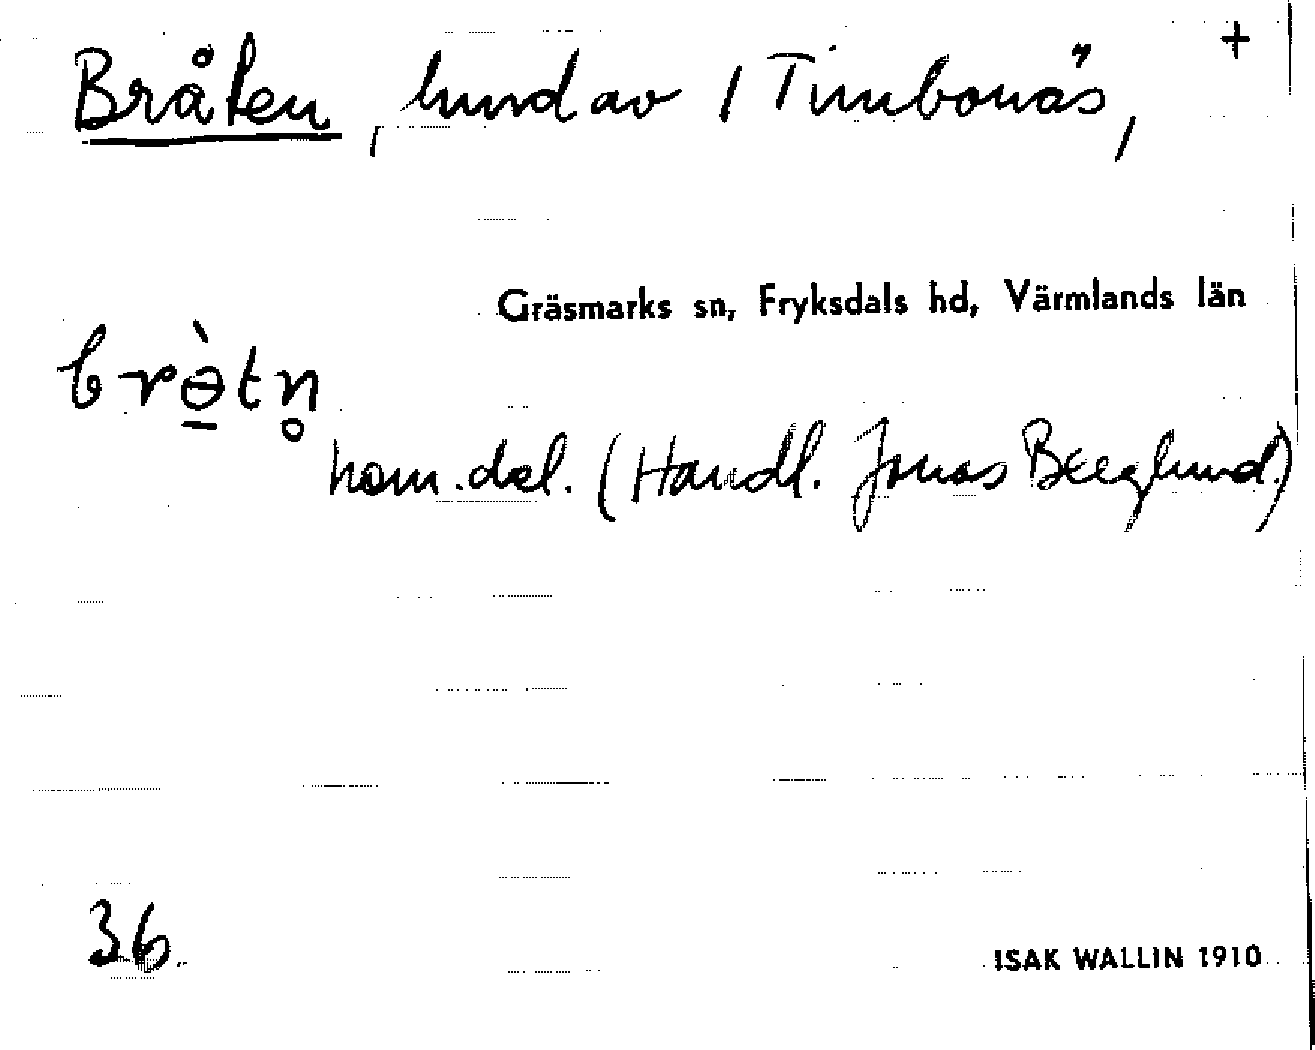 Bråten, hmd av 1 Timbonäs, +
Gräsmarks sn, Fryksdals hd, Värmlands län
brɵ̠̀tn̥
hom. dal. (Handl. Jonas Berglund.)
36.
ISAK WALLIN 1910